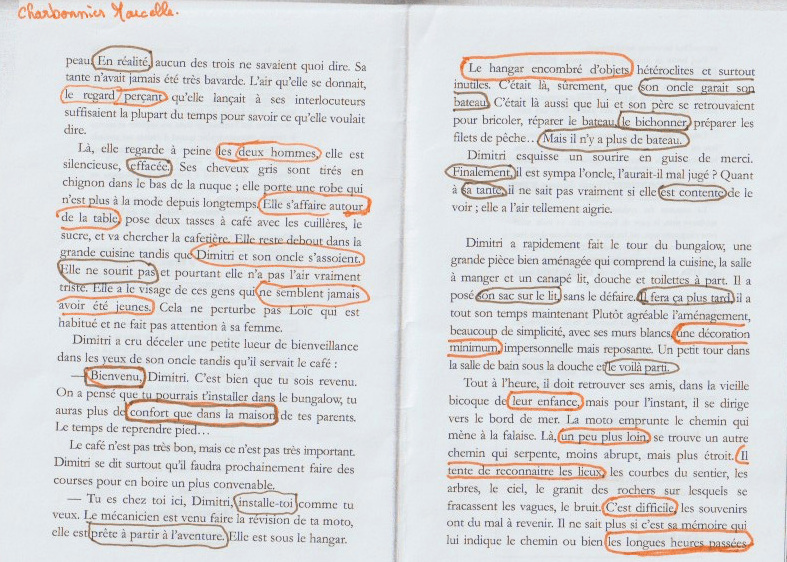 Charbonnier Marcelle.
peau. En réalité, aucun des trois ne savaient quoi dire. Sa
tante n'avait jamais été très bavarde. L'air qu'elle se donnait,
le regard perçant qu'elle lançait à ses interlocuteurs
suffisaient la plupart du temps pour savoir ce qu'elle voulait
dire.
Là, elle regarde à peine les deux hommes, elle est
silencieuse, effacée. Ses cheveux gris sont tirés en
chignon dans le bas de la nuque ; elle porte une robe qui
n'est plus à la mode depuis longtemps. Elle s'affaire autour
de la table, pose deux tasses à café avec les cuillères, le
sucre, et va chercher la cafetière. Elle reste debout dans la
grande cuisine tandis que Dimitri et son oncle s'assoient.
Elle ne sourit pas et pourtant elle n'a pas l'air vraiment
triste. Elle a le visage de ces gens qui ne semblent jamais
avoir été jeunes. Cela ne perturbe pas Loïc qui est
habitué et ne fait pas attention à sa femme.
Dimitri a cru déceler une petite lueur de bienveillance
dans les yeux de son oncle tandis qu'il servait le café :
— Bienvenu, Dimitri. C'est bien que tu sois revenu.
On a pensé que tu pourrais t'installer dans le bungalow, tu
auras plus de confort que dans la maison de tes parents.
Le temps de reprendre pied…
Le café n'est pas très bon, mais ce n'est pas très important.
Dimitri se dit surtout qu'il faudra prochainement faire des
courses pour en boire un plus convenable.
— Tu es chez toi ici, Dimitri, installe-toi comme tu
veux. Le mécanicien est venu faire la révision de ta moto,
elle est prête à partir à l'aventure. Elle est sous le hangar.
Le hangar encombré d'objets hétéroclites et surtout
inutiles. C'était là, sûrement, que son oncle garait son
bateau. C'était là aussi que lui et son père se retrouvaient
pour bricoler, réparer le bateau, le bichonner, préparer les
filets de pêche… Mais il n'y a plus de bateau.
Dimitri esquisse un sourire en guise de merci.
Finalement, il est sympa l'oncle, l'aurait-il mal jugé ? Quant
à sa tante, il ne sait pas vraiment si elle est contente de le
voir ; elle a l'air tellement aigrie.
Dimitri a rapidement fait le tour du bungalow, une
grande pièce bien aménagée qui comprend la cuisine, la salle
à manger et un canapé lit, douche et toilettes à part. Il a
posé son sac sur le lit, sans le défaire. Il fera ça plus tard, il a
tout son temps maintenant Plutôt agréable l'aménagement,
beaucoup de simplicité, avec ses murs blancs, une décoration
minimum, impersonnelle mais reposante. Un petit tour dans
la salle de bain sous la douche et le voilà parti.
Tout à l'heure, il doit retrouver ses amis, dans la vieille
bicoque de leur enfance, mais pour l'instant, il se dirige
vers le bord de mer. La moto emprunte le chemin qui
mène à la falaise. Là, un peu plus loin, se trouve un autre
chemin qui serpente, moins abrupt, mais plus étroit. Il
tente de reconnaitre les lieux, les courbes du sentier, les
arbres, le ciel, le granit des rochers sur lesquels se
fracassent les vagues, le bruit. C'est difficile, les souvenirs
ont du mal à revenir. Il ne sait plus si c'est sa mémoire qui
lui indique le chemin ou bien les longues heures passées